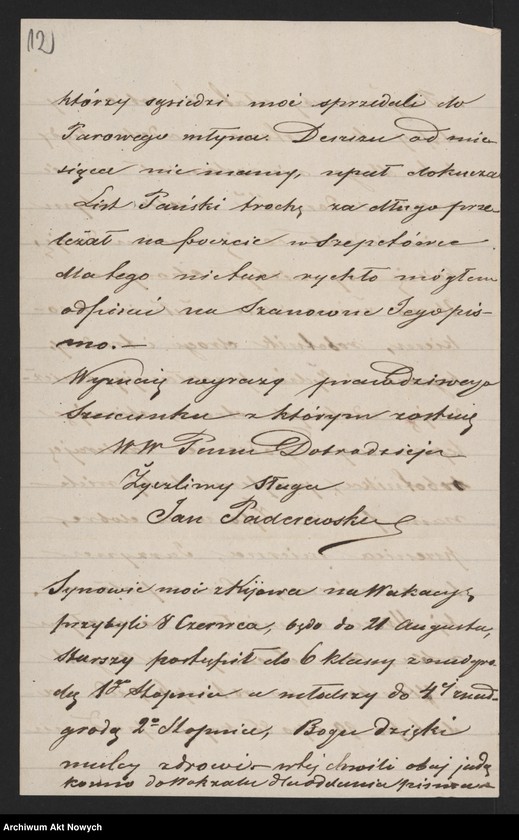 12
którzy sąsiedzi moi sprzedali do
Parowego młyna. Deszczu od mie-
siąca nie mamy, upał dokucza
List Pański trochę za długo prze-
leżał na poczcie w Szepetówce
dla tego nie tak rychło mógłem
odpisać na Szanowne Jego pis-
mo. —
wyrazy prawdziwego
Szacunku z którym zostaję
WW Pana Dobrodzieja
Życzliwy sługa
Jan Paderewski
Synowie moi z Kijowa na Wakacyę
przybyli 8 Czerwca, będą do 21 Augusta,
starszy postąpił do 6 klassy z nadgro-
dą 1go Stopnia a młodszy do 4ej z nad-
grodą 2o Stopnia, Bogu dzięki
zdrowi w tej chwili obaj jadą
konno do Wokzalu dla oddania pisma
Archiwum Akt Nowych